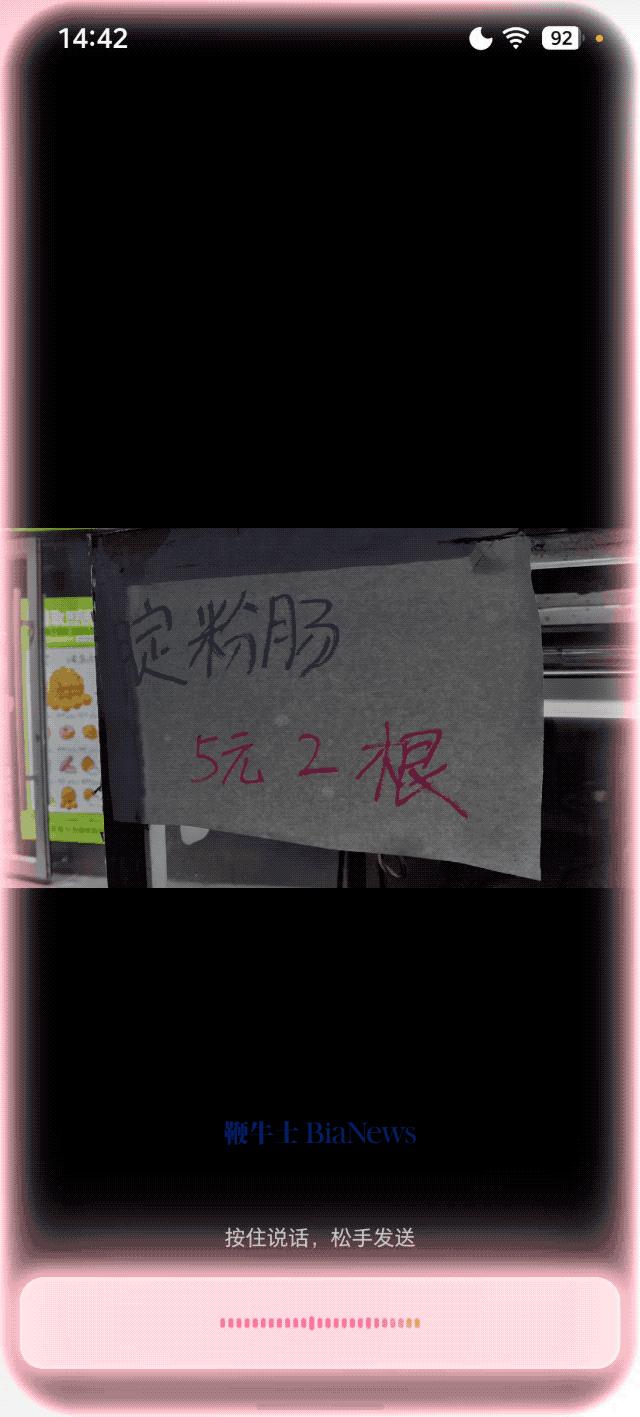 14:42
92
淀粉肠
5元2根
鞭牛士 BiaNews
按住说话，松手发送